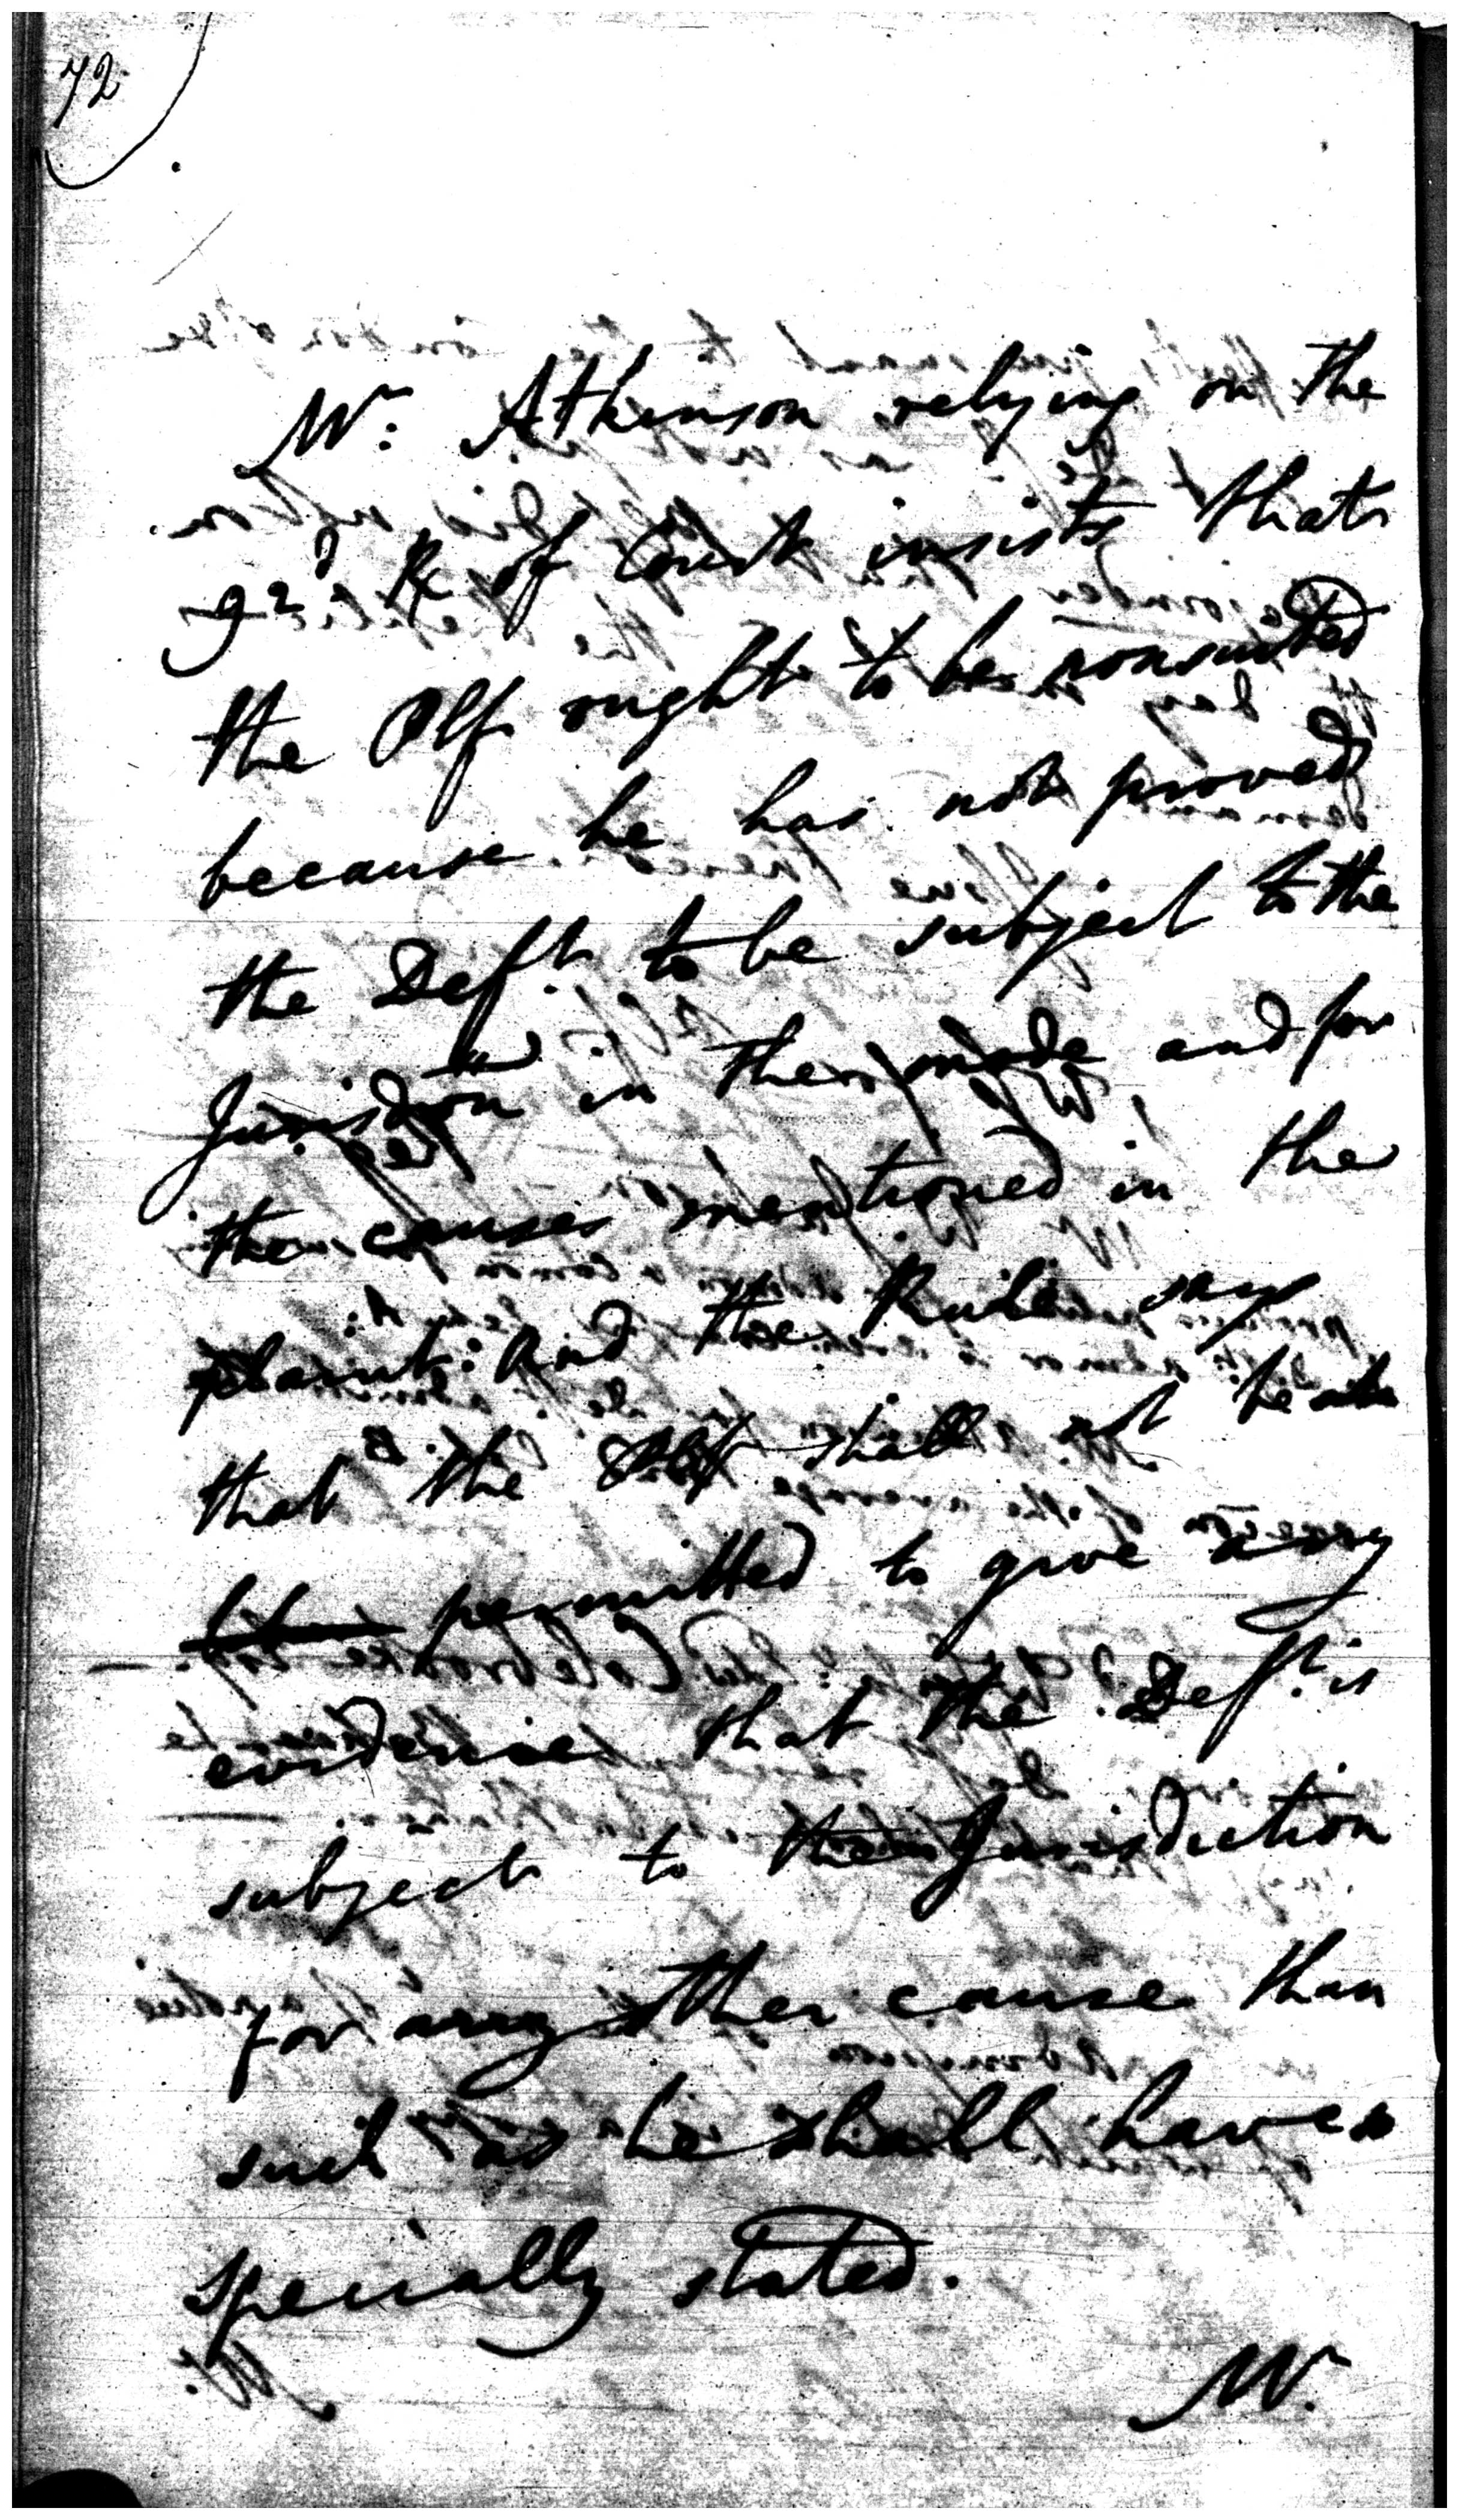 72
Mr. Atkinson relying on the
92d R of Court insists that
the Plf ought to be nonsuited
because he has not proved
the Deft. to be subject to the
Jurisdon in the mode and for
the causes mentioned in the
plaint: And the Rule says
that the Plf shall not be
permitted to give any
evidence that the Deft. is
subject to Jurisdiction
for any other cause than
such as he shall have
specially stated.
Mr.